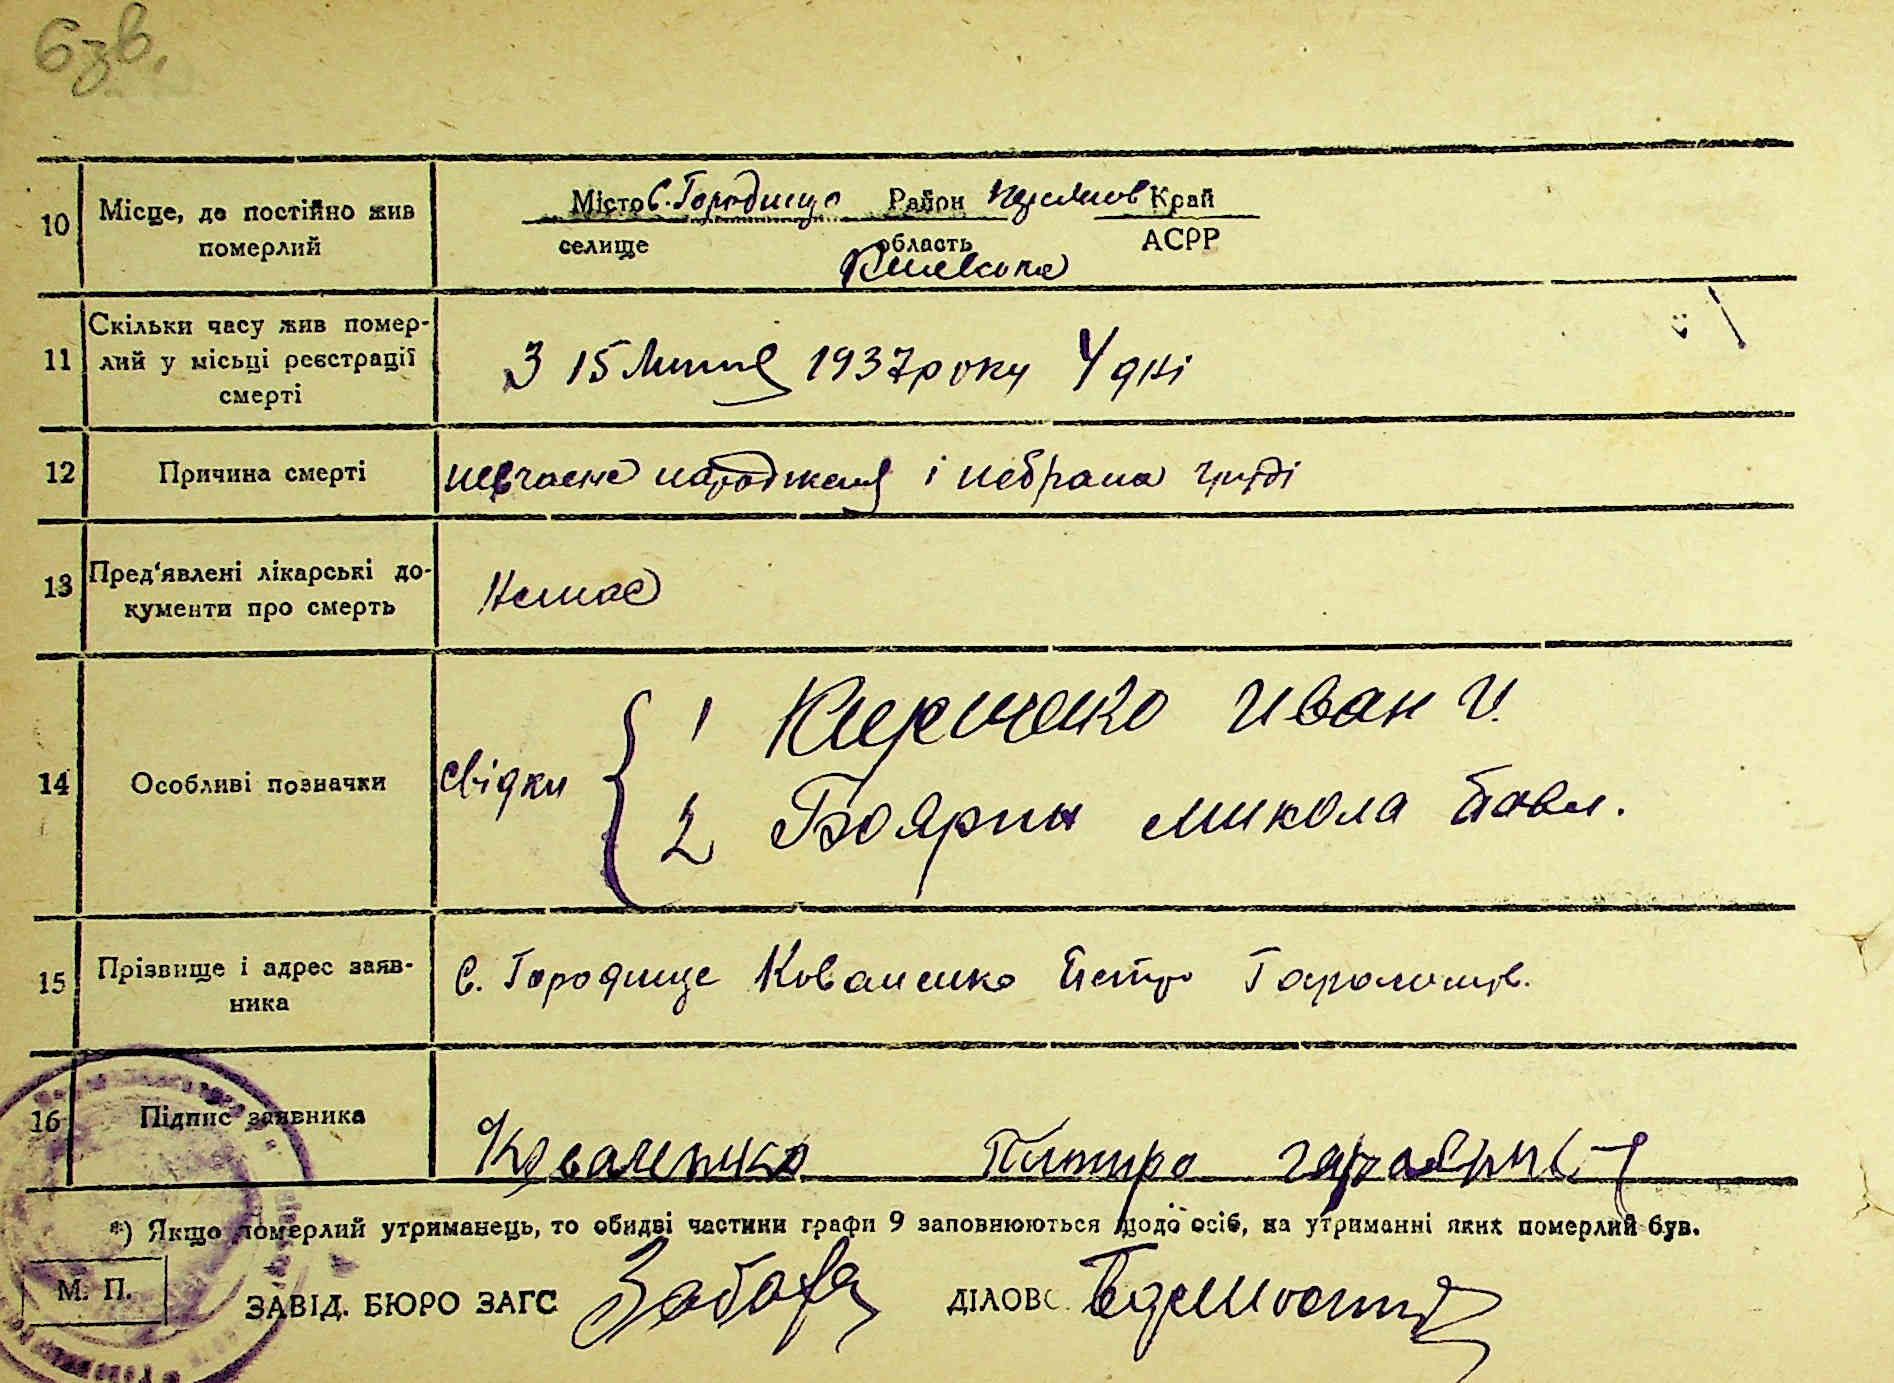 6зв.
10 Місце, де постійно жив померлий
Місто с. Городище Район Край
селище область АСРР
11 Скільки часу жив помер-
лий у місьці реєстрації
смерті
З 15 Липня 1937 року 4 дні
12 Причина смерті невчасне народженя і небрала груді
13 Пред'явлені лікарські до-
кументи про смерть
Немає
14 Особливі позначки свідки
1 Иван И.
2 Боярин Микола Павл.
15 Прізвище і адрес заяв-
ника
с. Городище Коваленко Петро
16 Підпис заявника Коваленко
*) Якщо померлий утриманець, то обидві частини графи 9 заповнюються щодо осіб, на утриманні яких померлий був.
М. П.
ЗАВІД. БЮРО ЗАГС ДІЛОВ